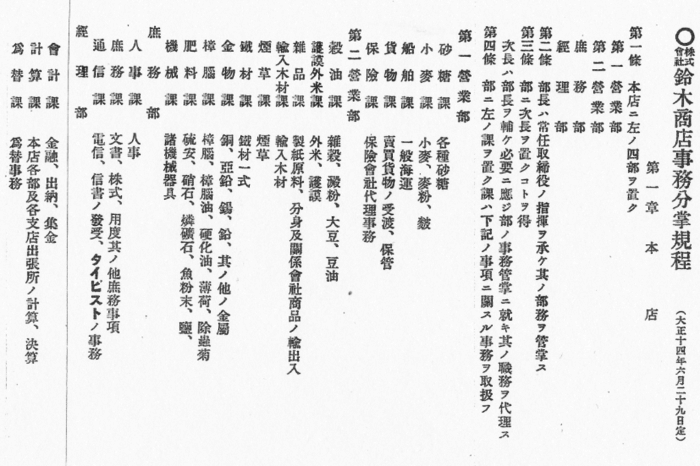 〇株式會社鈴木商店事務分掌規程 (大正十四年六月二十九日定)
第一章 本店
第一條 本店ニ左ノ四部ヲ置ク
第一營業部
第二營業部
庶務部
經理部
第二條 部長ハ常任取締役ノ指揮ヲ承ケ其ノ部務ヲ管掌ス
第三條 部ニ次長ヲ置クコトヲ得
次長ハ部長ヲ輔ケ必要ニ應ジ部ノ事務管掌ニ就キ其ノ職務ヲ代理ス
第四條 部ニ左ノ課ヲ置ク課ハ下記ノ事項ニ關スル事務ヲ取扱フ
第一營業部
砂糖課 各種砂糖
小麥課 小麥、麥粉、麩
船舶課 一般海運
貨物課 賣買貨物ノ受渡、保管
保險課 保險會社代理事務
第二營業部
穀油課 雜穀、澱粉、大豆、豆油
護謨外米課 外米、護謨
雜品課 製紙原料、分身及關係會社商品ノ輸出入
輸入木材課 輸入木材
煙草課 煙草
鐵材課 鐵材一式
金物課 銅、亞鉛、錫、鉛、其ノ他ノ金屬
樟腦課 樟腦、樟腦油、硬化油、薄荷、除蟲菊
肥料課 硫安、硝石、燐礦石、魚粉末、鹽、
機械課 諸機械器具
庶務部
人事課 人事
庶務課 文書、株式、用度其ノ他庶務事項
通信課 電信、信書ノ發受、タイピストノ事務
經理部
會計課 金融、出納、集金
計算課 本店各部及各支店出張所ノ計算、決算
爲替課 爲替事務